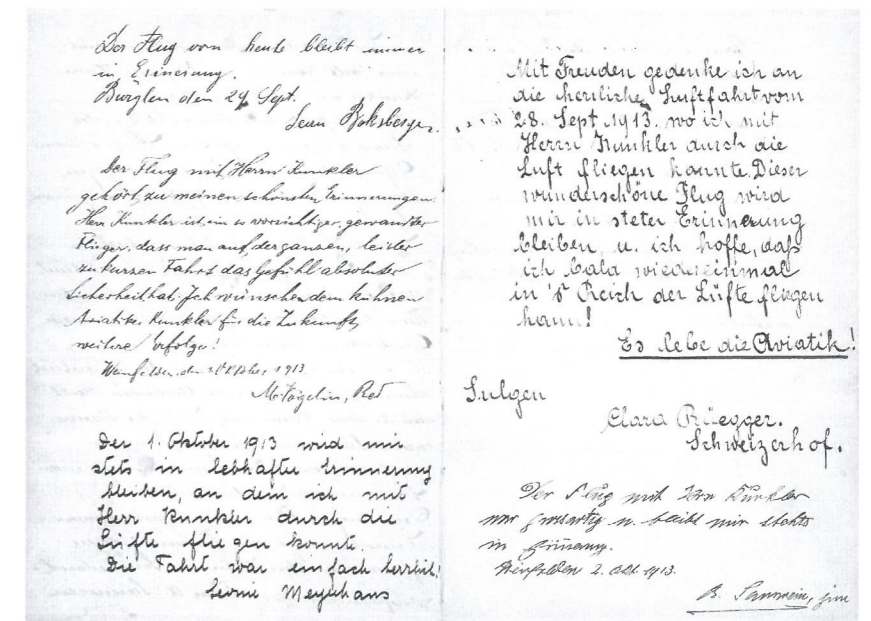 Der Flug von heute bleibt immer
in Erinerung.
Bürglen den 29 Sept.
Jean Boksberger.
Der Flug mit Herrn Kunkler
gehört zu meinen schönsten Erinnerungen.
Herr Kunkler ist ein so vorsichtiger, gewandter
Flieger, dass man auf der ganzen, leider
zu kurzen Fahrt das Gefühl absoluter
Sicherheit hat. Ich wünsche dem kühnen
Aviatiker Kunkler für die Zukunft,
weitere Erfolge!
Weinfelden, den 1. Oktober 1913
M. Vögelin, Red
Der 1. Oktober 1913 wird mir
stets in lebhafter Erinnerung
bleiben, an dem ich mit
Herr Kunkler durch die
Lüfte fliegen konnte.
Die Fahrt war einfach herrlich!
Meyerhans
Mit Freuden gedenke ich an
die herrliche Luftfahrt vom
28. Sept. 1913. wo ich mit
Herrn Kunkler durch die
Luft fliegen konnte. Dieser
wunderschöne Flug wird
mir in steter Erinnerung
bleiben, u. ich hoffe, daß
ich bald wiedereinmal
in 's Reich der Lüfte fliegen
kann!
Es lebe die Aviatik!
Sulgen
Clara Rüegger.
Schweizerhof.
Der Flug mit Hrn Kunkler
war grossartig u. bleibt mir stehts
in Erinnerg.
Weinfelden 2. Okt. 1913.
jun